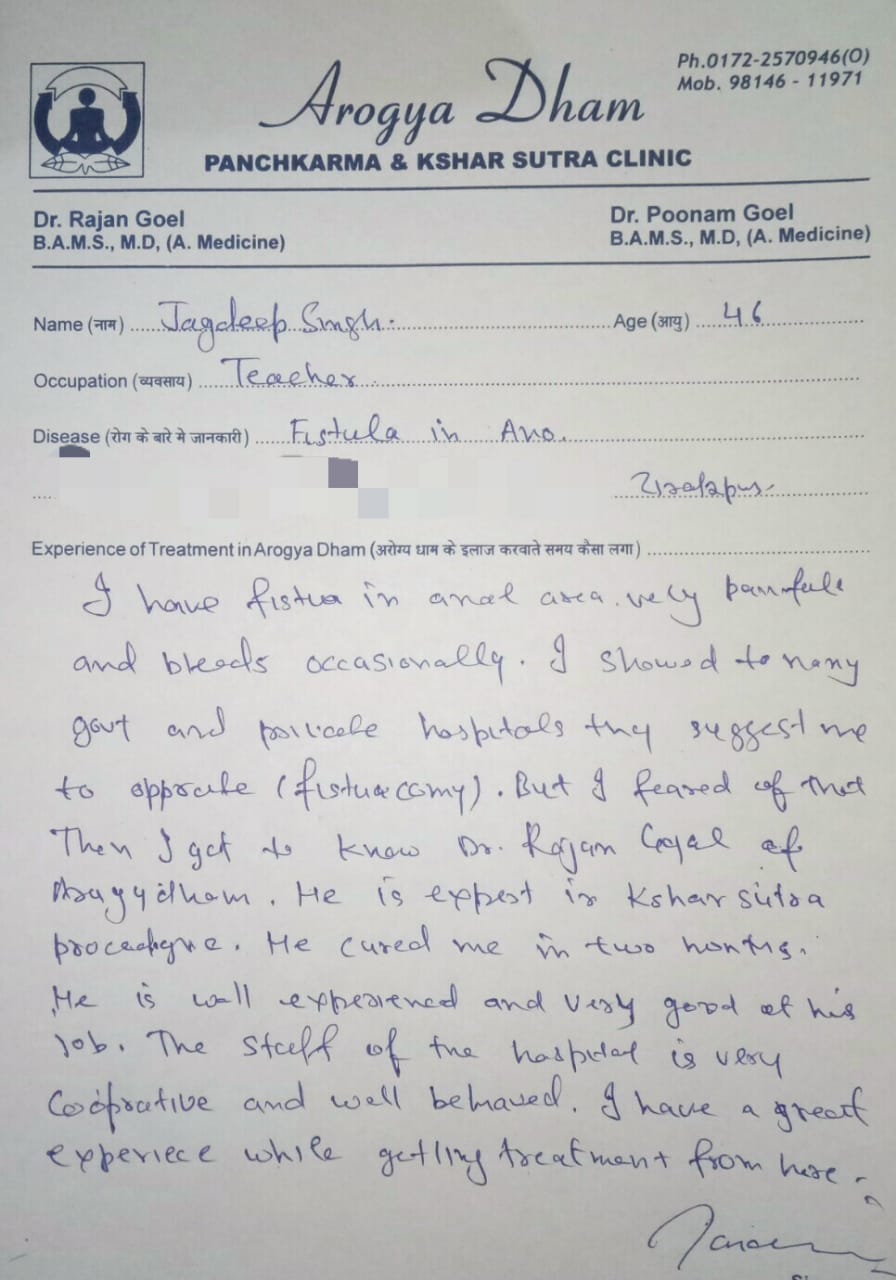 Ph.0172-2570946(O)
Mob. 98146 - 11971
Arogya Dham
PANCHKARMA & KSHAR SUTRA CLINIC
Dr. Rajan Goel
B.A.M.S., M.D, (A. Medicine)
Dr. Poonam Goel
B.A.M.S., M.D, (A. Medicine)
Name (नाम) Jagdeep Singh. Age (आयु) 46
Occupation (व्यवसाय) Teacher
Disease (रोग के बारे मे जानकारी) Fistula in Ano.
Experience of Treatment in Arogya Dham (अरोग्य धाम के इलाज करवाते समय कैसा लगा)
I have fistua in anal area. very painfull
and bleeds occasionally. I showed to many
govt and private hospitals they suggest me
to opprate (fistuaccomy). But I feared of that
Then I got to know Dr. Rajan Goyal of
Arogydham. He is expert in Kshar sutra
procedgure. He cured me in two months.
He is well experienced and very good at his
job. The staff of the hospital is very
Cooprative and well behaved. I have a great
experiece while getting treatment from here.